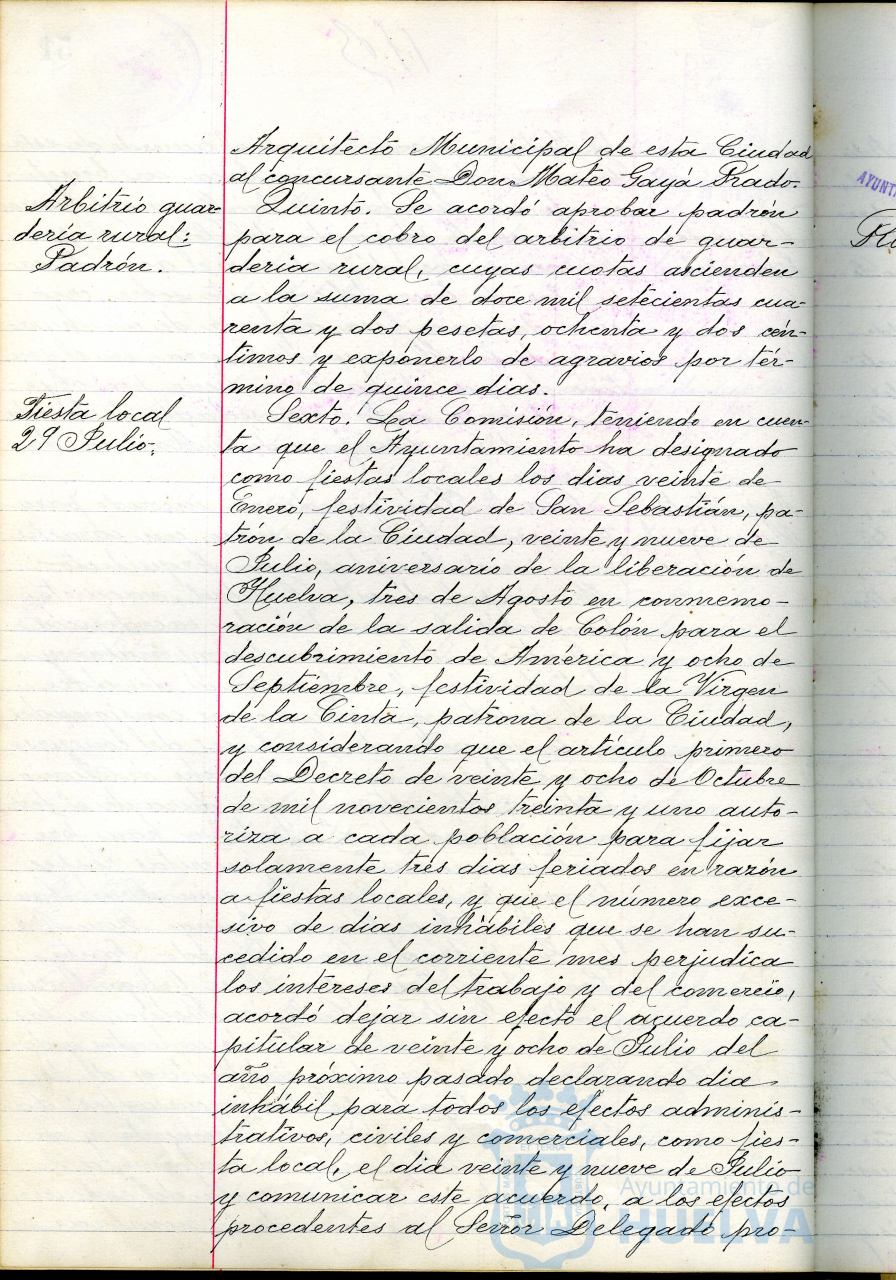 Arquitecto Municipal de esta Ciudad
al concursante Don Mateo Gayá Prado.
Arbitrio guar-
dería rural:
Padrón.
Quinto. Se acordó aprobar padrón
para el cobro del arbitrio de guar-
dería rural, cuyas cuotas ascienden
a la suma de doce mil setecientas cua-
renta y dos pesetas, ochenta y dos cén-
timos y exponerlo de agravios por tér-
mino de quince dias.
Fiesta local
29 Julio.
Sexto. La Comisión, teniendo en cuen-
ta que el Ayuntamiento ha designado
como fiestas locales los dias veinte de
Enero, festividad de San Sebastián, pa-
trón de la Ciudad, veinte y nueve de
Julio, aniversario de la liberación de
Huelva, tres de Agosto en conmemo-
ración de la salida de Colón para el
descubrimiento de América y ocho de
Septiembre, festividad de la Virgen
de la Cinta, patrona de la Ciudad,
y considerando que el artículo primero
del Decreto de veinte y ocho de Octubre
de mil novecientos treinta y uno auto-
riza a cada población para fijar
solamente tres dias feriados en razón
a fiestas locales, y que el número exce-
sivo de dias inhábiles que se han su-
cedido en el corriente mes perjudica
los intereses del trabajo y del comercio,
acordó dejar sin efecto el acuerdo ca-
pitular de veinte y ocho de Julio del
año próximo pasado declarando dia
inhábil para todos los efectos adminis-
trativos, civiles y comerciales, como fies-
ta local, el dia veinte y nueve de Julio
y comunicar este acuerdo, a los efectos
procedentes al Señor Delegado pro-
Ayuntamiento de
HUELVA
AYUNTA